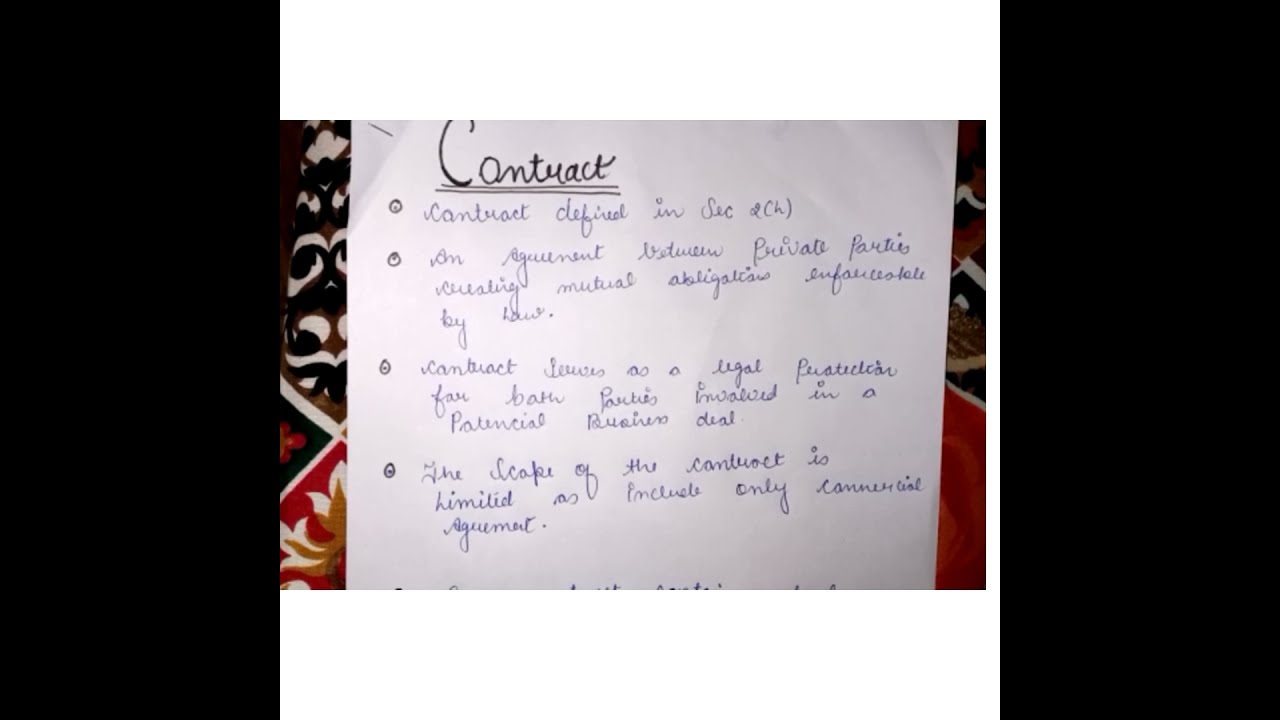 Contract
Contract defined in Sec 2(h)
An Agreement between Private Parties
creating mutual obligations enforceable
by Law.
Contract Serves as a legal Protection
for both Parties involved in a
Potencial Business deal.
The Scope of the contract is
Limited as include only commercial
Agreement.